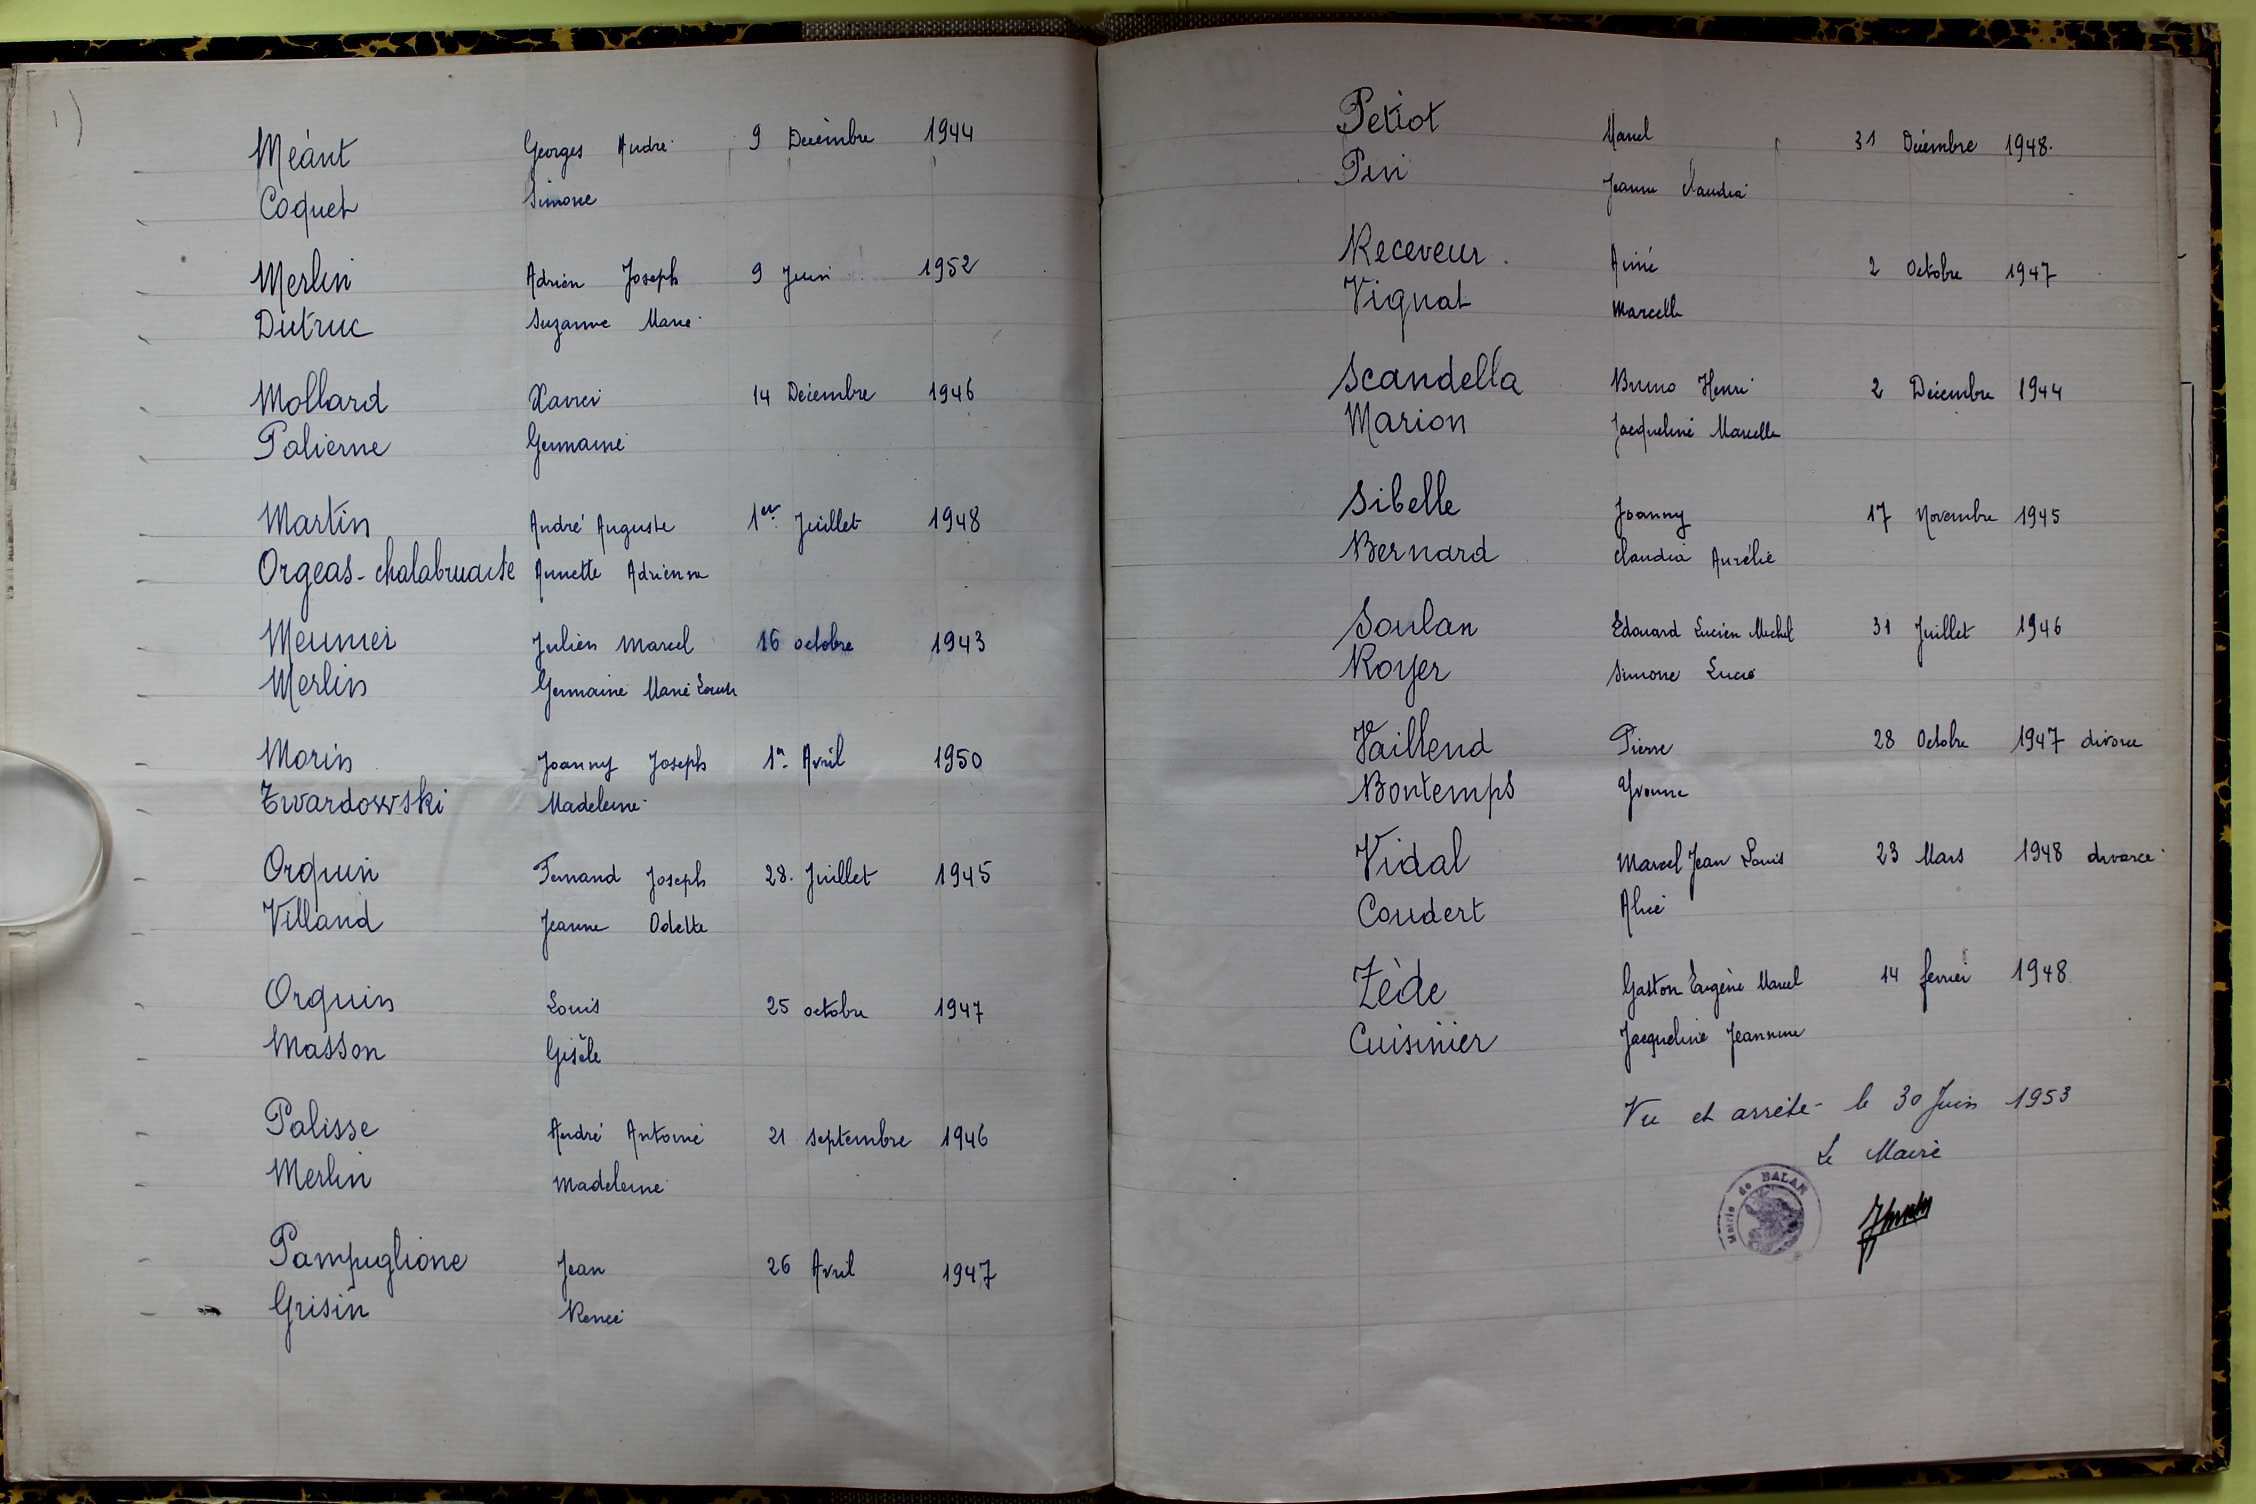 Méant Georges André 9 Décembre 1944
Coquet Simone
Merlin Adrien Joseph 9 Juin 1952
Dutruc Suzanne Marie
Mollard Xavier 14 Décembre 1946
Palierne Germaine
Martin André Auguste 1er Juillet 1948
Orgeas - Annette Adrienne
Meunier Julien Marcel 16 octobre 1943
Merlin Germaine Marie Louise
Morin Joanny Joseph 1er Avril 1950
Twardowski Madeleine
Orquin Fernand Joseph 28 Juillet 1945
Villand Jeanne Odette
Orquin Louis 25 octobre 1947
Masson Gisèle
Palisse André Antoine 21 septembre 1946
Merlin Madeleine
Pampuglione Jean 26 Avril 1947
Grisin Renée
Petiot Marcel 31 Décembre 1948
Pin Jeanne Claudia
Receveur Aimé 2 Octobre 1947
Vignat Marcelle
Scandella Bruno Henri 2 Décembre 1944
Marion Jacqueline Marcelle
Sibelle Joanny 17 Novembre 1945
Bernard Claudia Aurélie
Soulan Edouard Lucien Michel 31 Juillet 1946
Royer Simone Lucie
Vaillend Pierre 28 Octobre 1947 divorce
Bontemps Yvonne
Vidal Marcel Jean Louis 23 Mars 1948 divorce
Coudert Alice
Zède Gaston Eugène Marcel 14 février 1948
Cuisinier Jacqueline Jeannine
Vu et arrêté le 30 Juin 1953
Le Maire
Mairie de BALAN